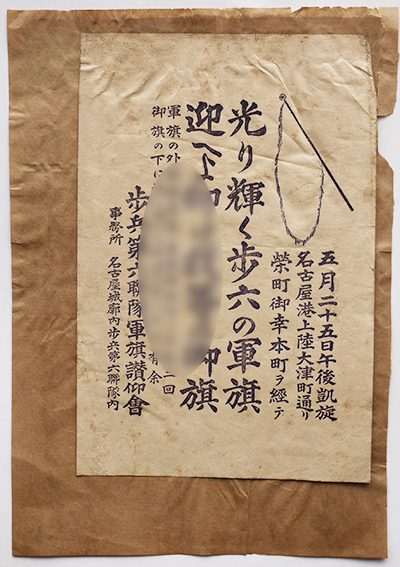 五月二十五日午後凱旋
名古屋港上陸大津町通り
榮町御幸本町ヲ經テ
光り輝く歩六の軍旗
迎へよ 御旗
軍旗の外 二回
御旗の下に 有余
歩兵第六聯隊軍旗讃仰會
事務所 名古屋城廓内歩兵第六聯隊内